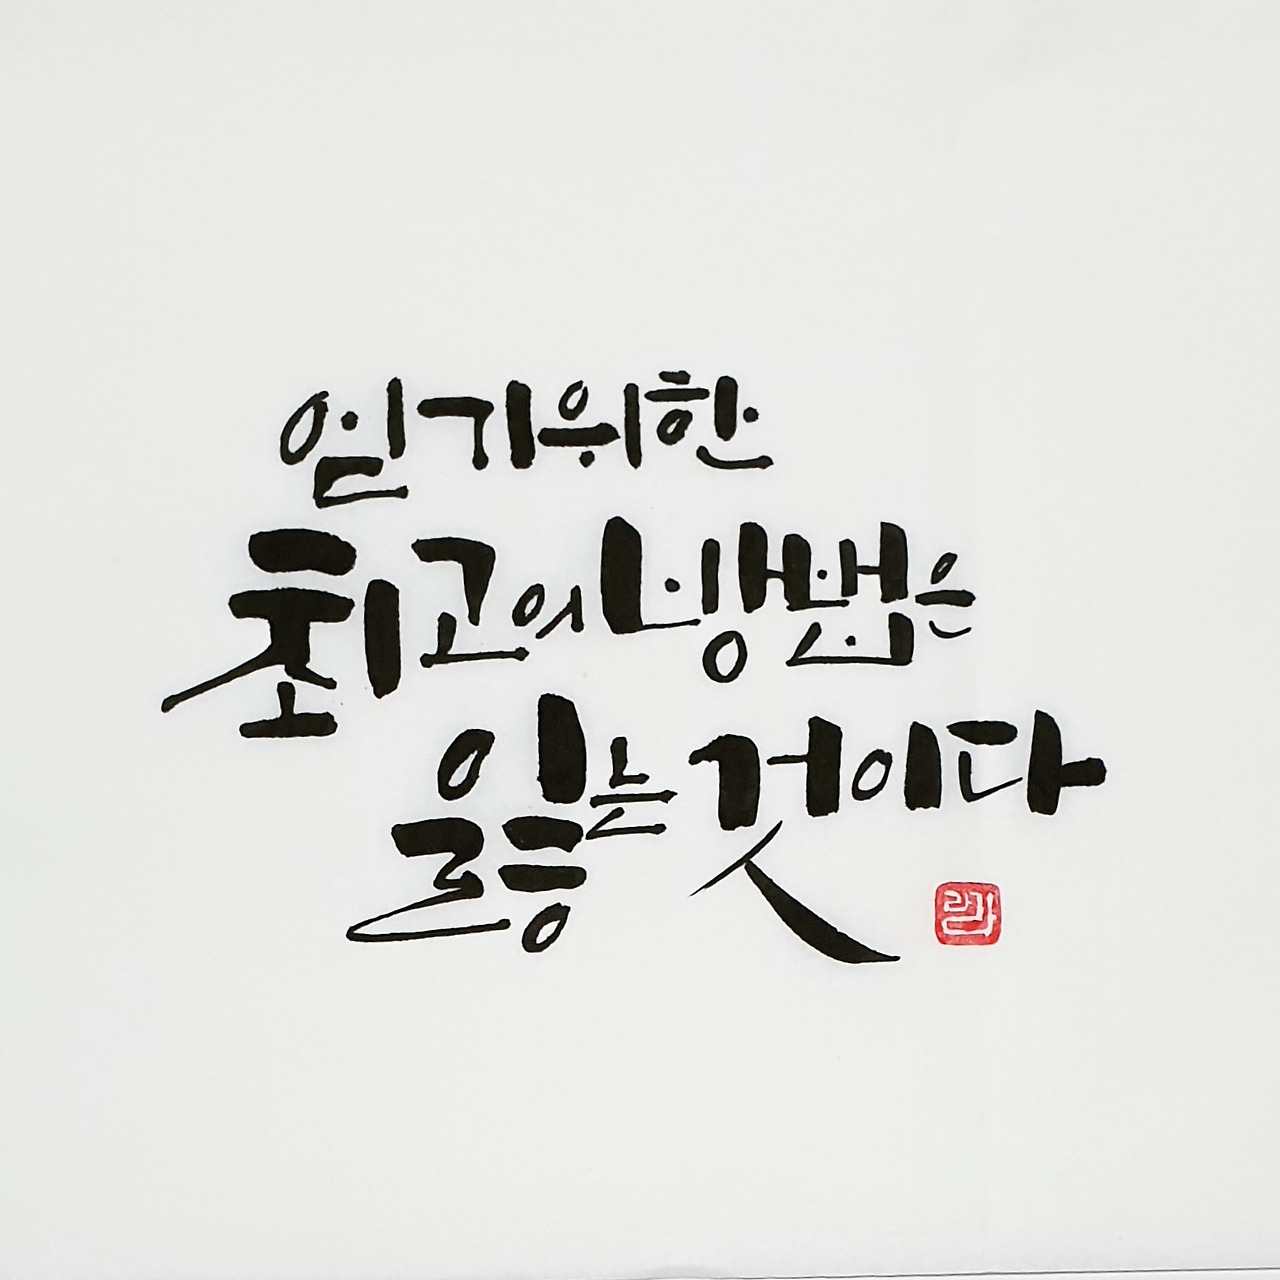 얻기위한
최고의 방법은
잃는 것이다